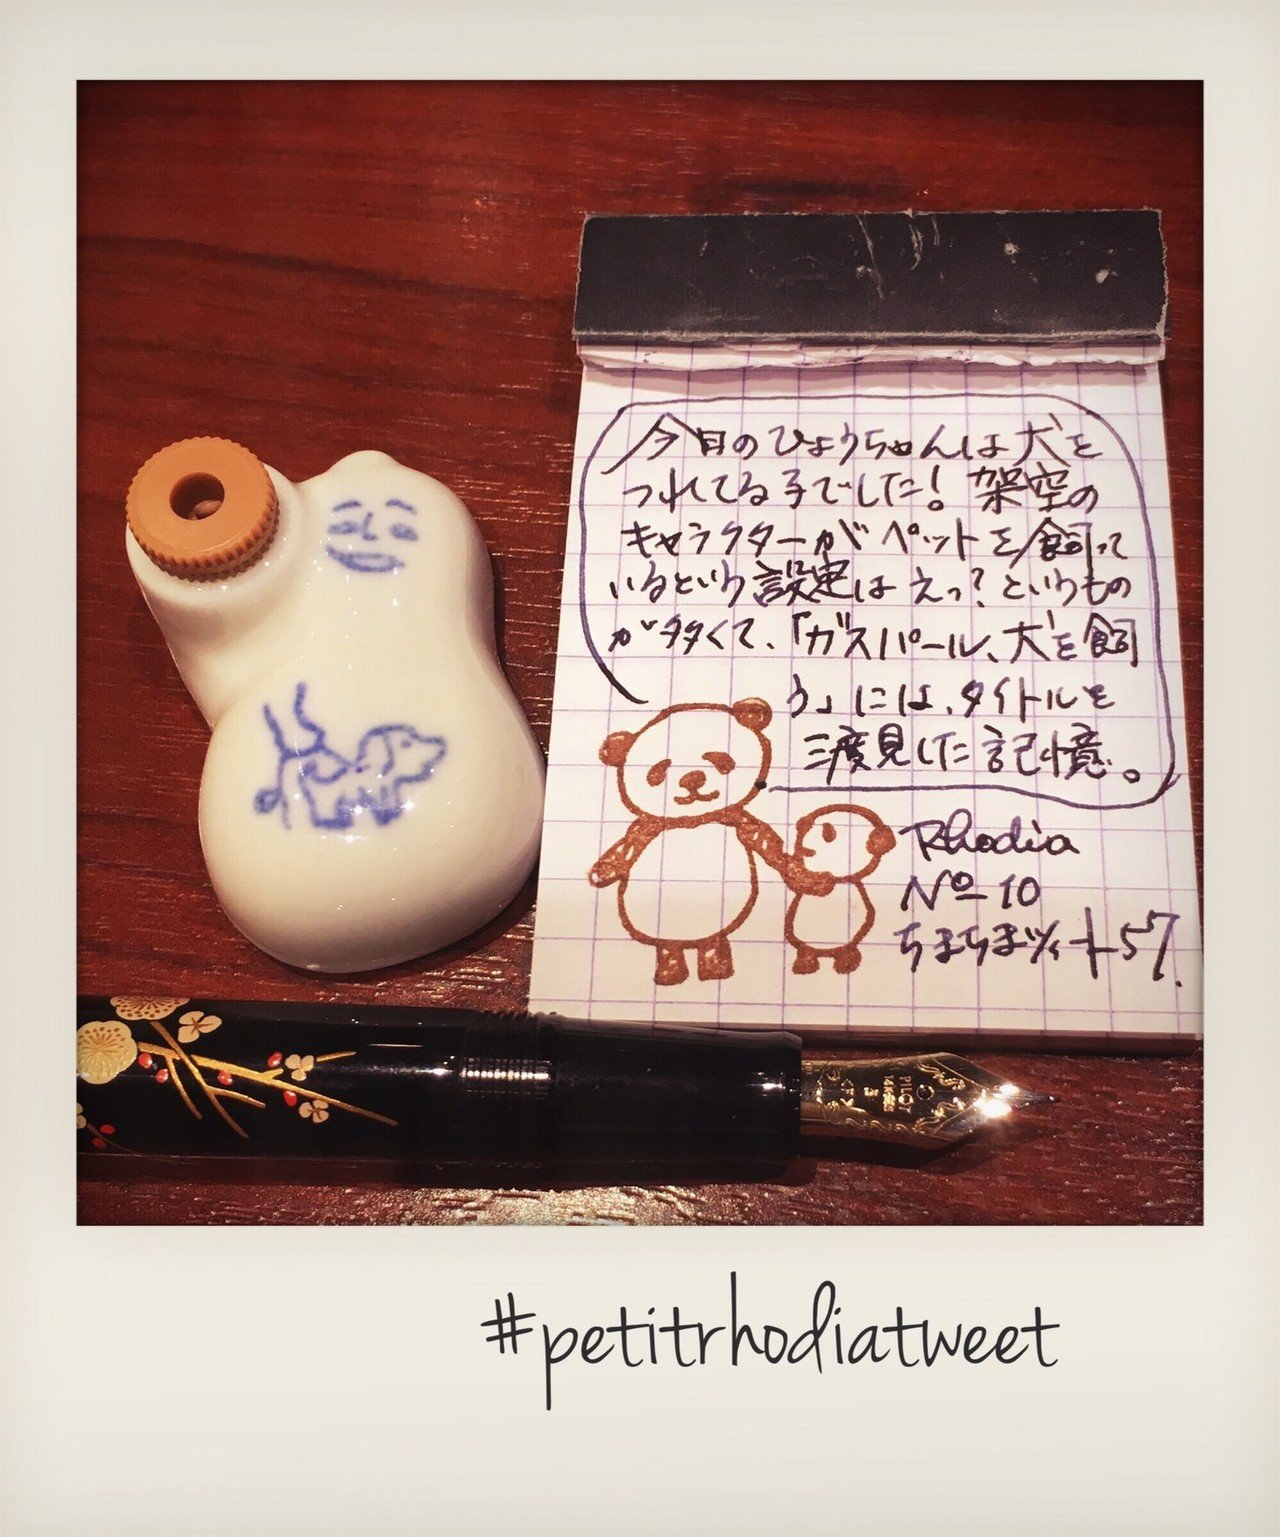 今日のひょうちゃんは犬を
つれてる子でした！架空の
キャラクターがペットを飼って
いるという設定はえっ？というもの
が多くて、「ガスパール、犬を飼
う」には、タイトルを
三度見した記憶。
Rhodia
No 10
ちまちまツイート57.
PILOT
14K
#petitrhodiatweet